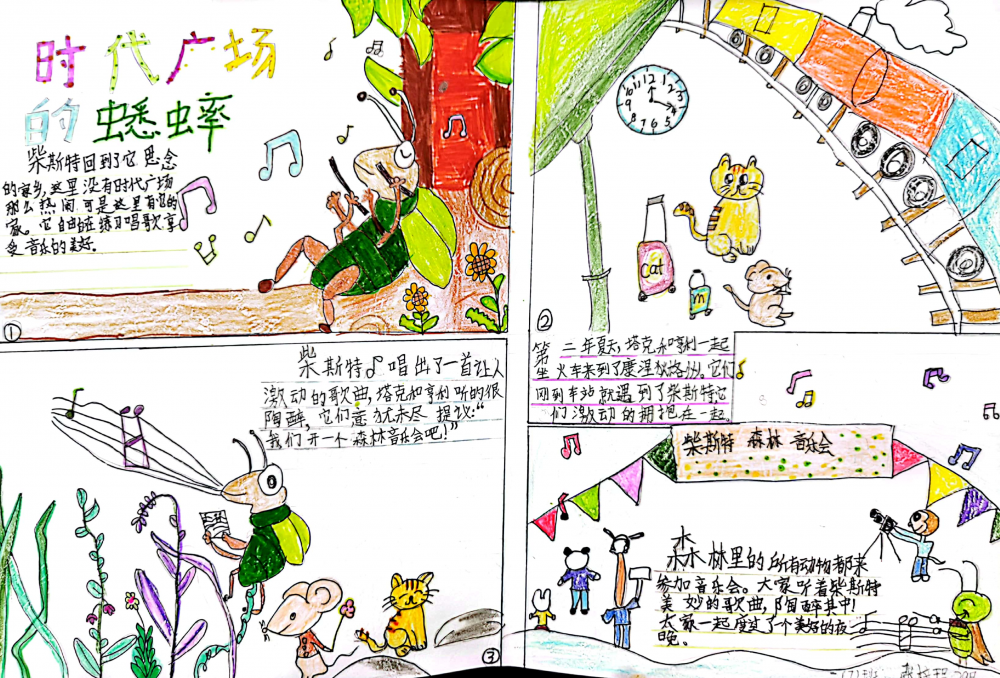 时代广场
的蟋蟀
柴斯特回到了它思念
的家乡,这里没有时代广场
那么热闹,可是这里有它的
家。它自由在练习唱歌享
受音乐的美好。
①
12
1
2
3
4
5
6
7
8
9
10
11
Cat
m
②
第二年夏天,塔克和亨利一起
坐火车来到了康涅狄格州。它们
刚到车站就遇到了柴斯特,它
们激动的拥抱在一起。
柴斯特唱出了一首让人
激动的歌曲,塔克和亨利听的很
陶醉,它们意犹未尽提议:“
我们开一个森林音乐会吧!”
③
柴斯特 森林 音乐会
森林里的所有动物都来
参加音乐会。大家听着柴斯特
美妙的歌曲,陶醉其中!
大家一起度过了个美好的夜
晚。